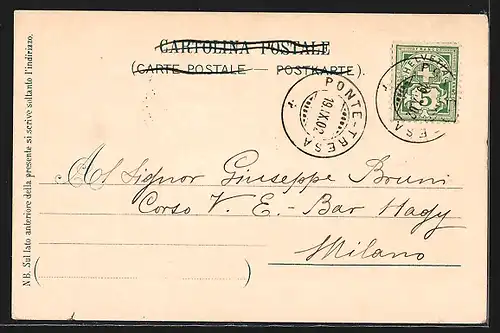 CARTOLINA POSTALE
(CARTE POSTALE — POSTKARTE).
HELVETIA
5
PONTE-TRESA
19.IX.02
PONTE-TRESA
Al Signor Giuseppe Bruni
Corso V. E. - Bar Hagy
Milano
NB. Sul lato anteriore della presente si scrive soltanto l'indirizzo.